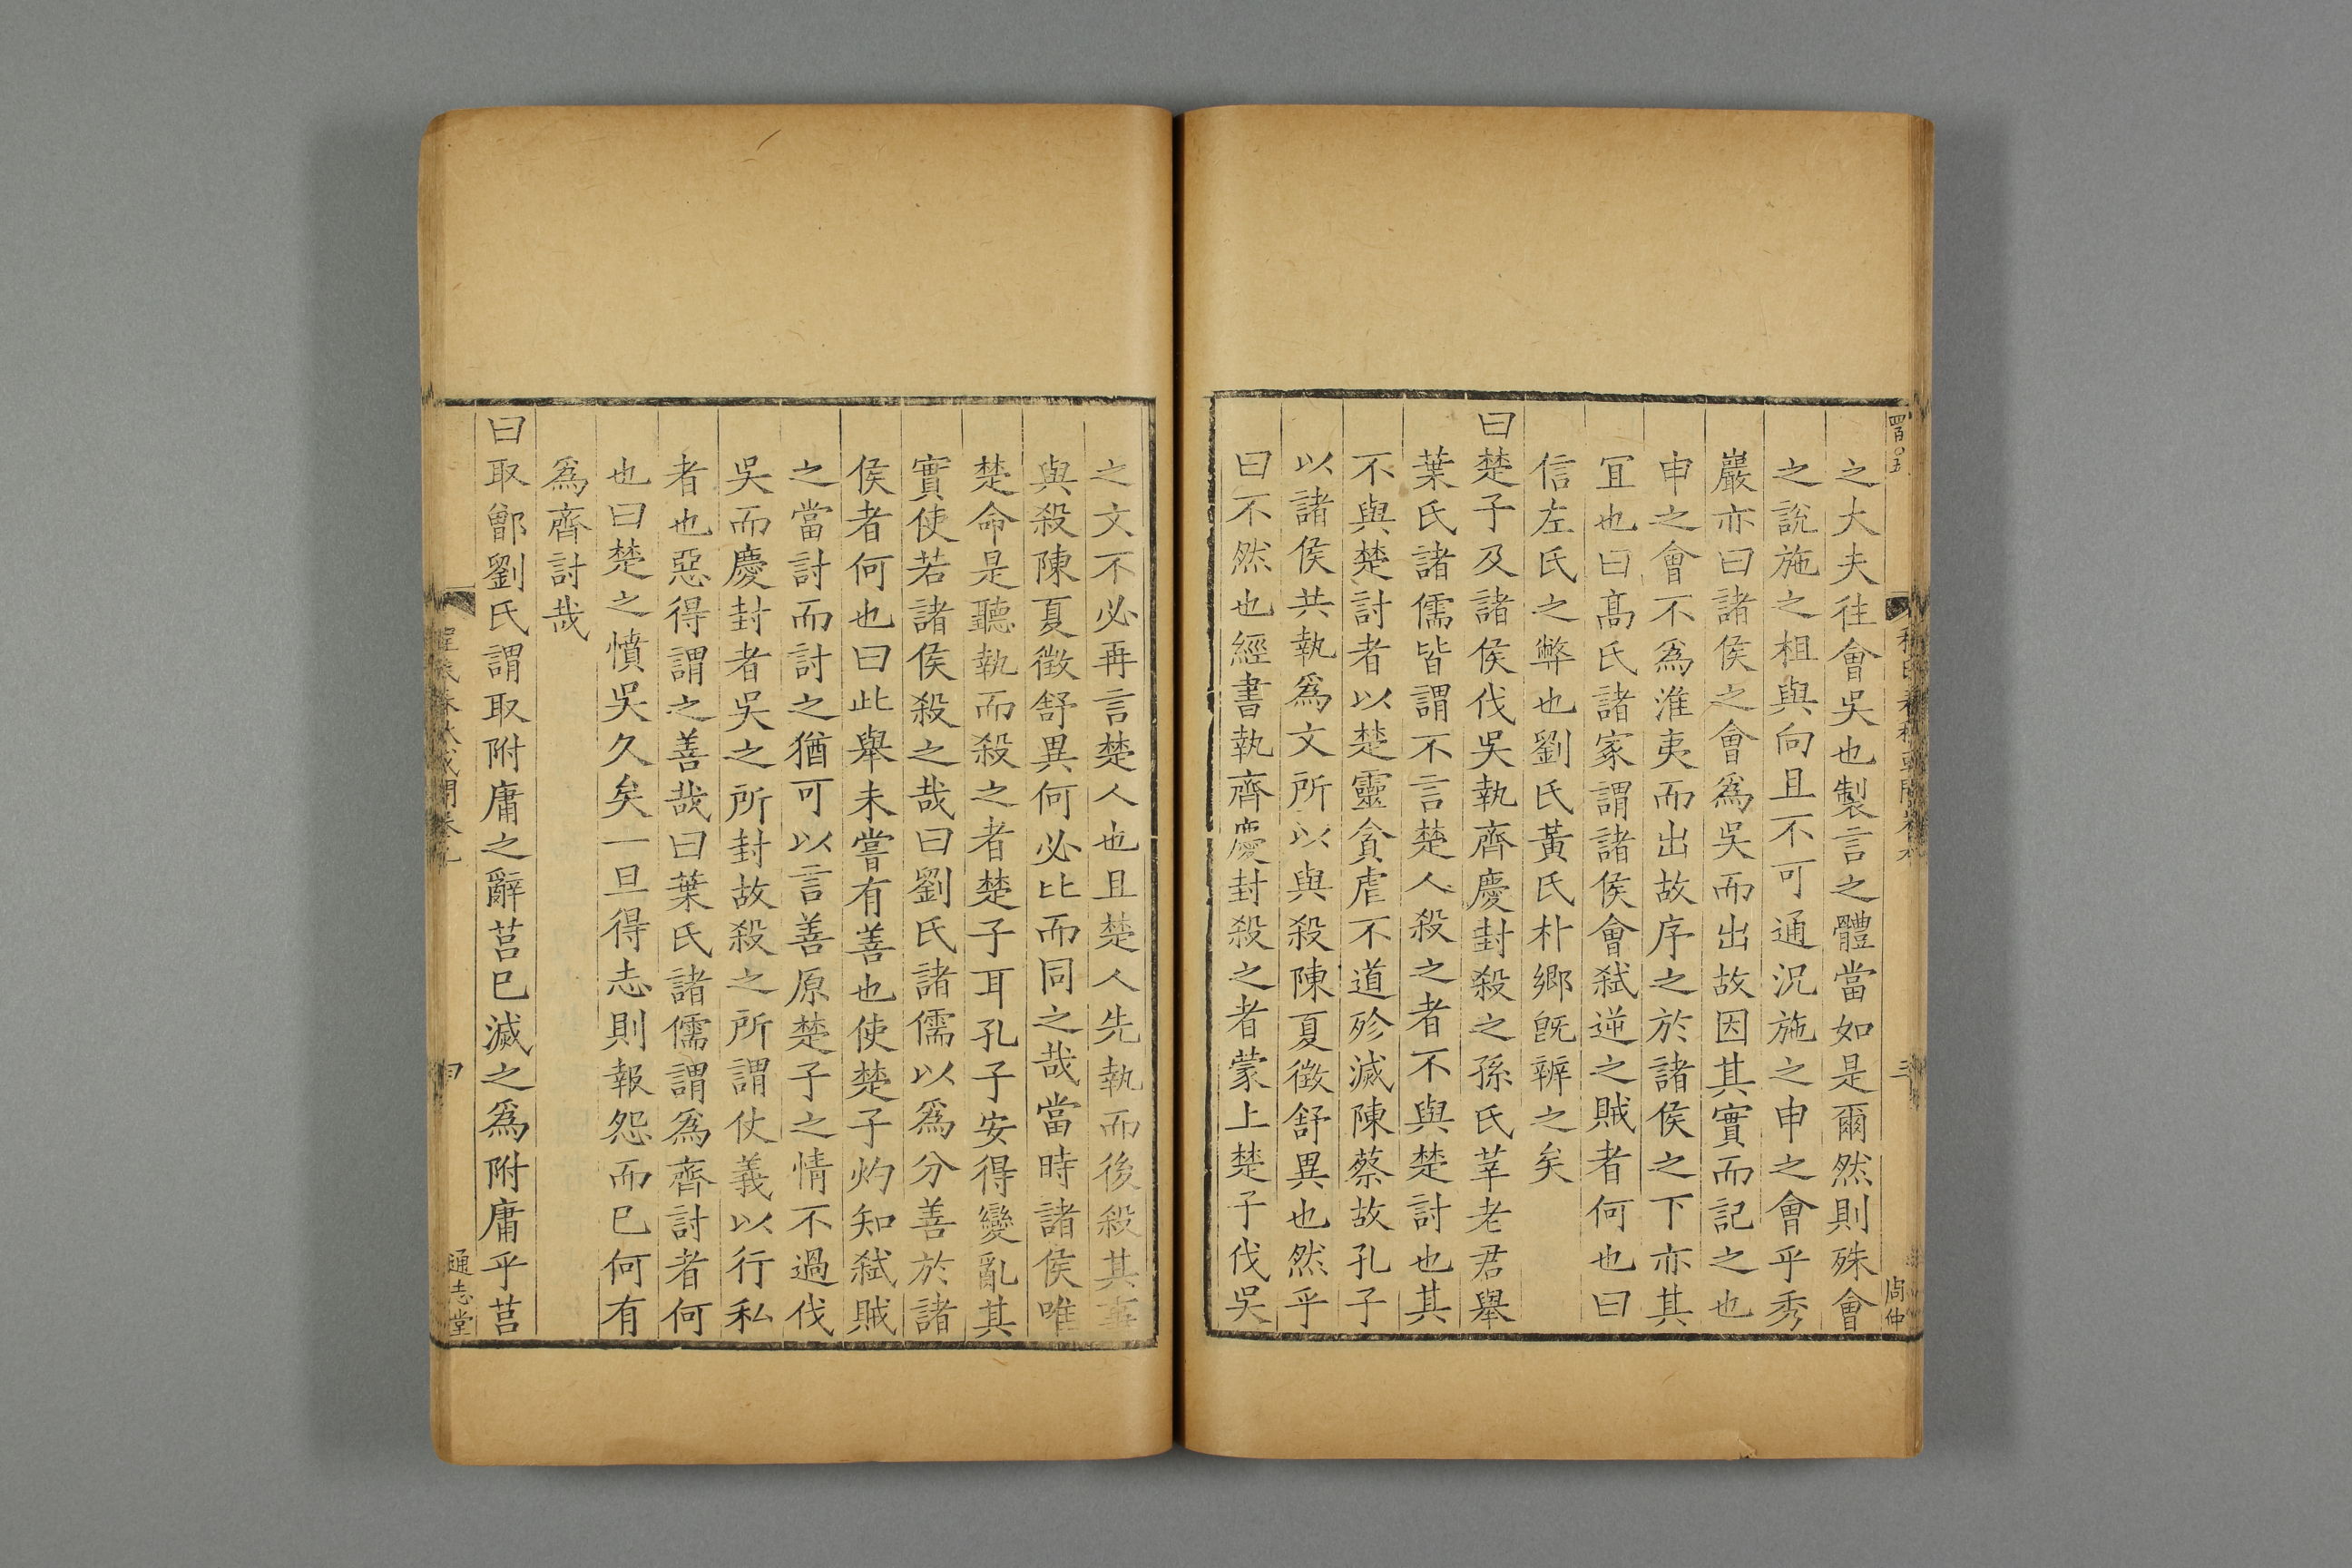 之大夫往會吳也製言之體當如是爾然則殊會
之說施之柤與向且不可通況施之申之會乎秀
巖亦曰諸侯之會爲吳而出故因其實而記之也
申之會不爲淮夷而出故序之於諸侯之下亦其
冝也曰髙氏諸家謂諸侯會弑逆之賊者何也曰
信左氏之弊也劉氏黃氏朴鄉旣辨之矣
曰楚子及諸侯伐吳執齊慶封殺之孫氏莘老君舉
葉氏諸儒皆謂不言楚人殺之者不與楚討也其
不與楚討者以楚靈貪虐不道殄滅陳蔡故孔子
以諸侯共執爲文所以與殺陳夏徵舒異也然乎
曰不然也經書執齊慶封殺之者蒙上楚子伐吳
之文不必再言楚人也且楚人先執而後殺其事
與殺陳夏徵舒異何必比而同之哉當時諸侯唯
楚命是聽執而殺之者楚子耳孔子安得變亂其
實使若諸侯殺之哉曰劉氏諸儒以爲分善於諸
侯者何也曰此舉未嘗有善也使楚子灼知弑賊
之當討而討之猶可以言善原楚子之情不過伐
吳而慶封者吳之所封故殺之所謂仗義以行私
者也惡得謂之善哉曰葉氏諸儒謂爲齊討者何
也曰楚之憤吳久矣一旦得志則報怨而巳何有
爲齊討哉
曰取鄫劉氏謂取附庸之辭莒巳滅之爲附庸乎莒
通志堂